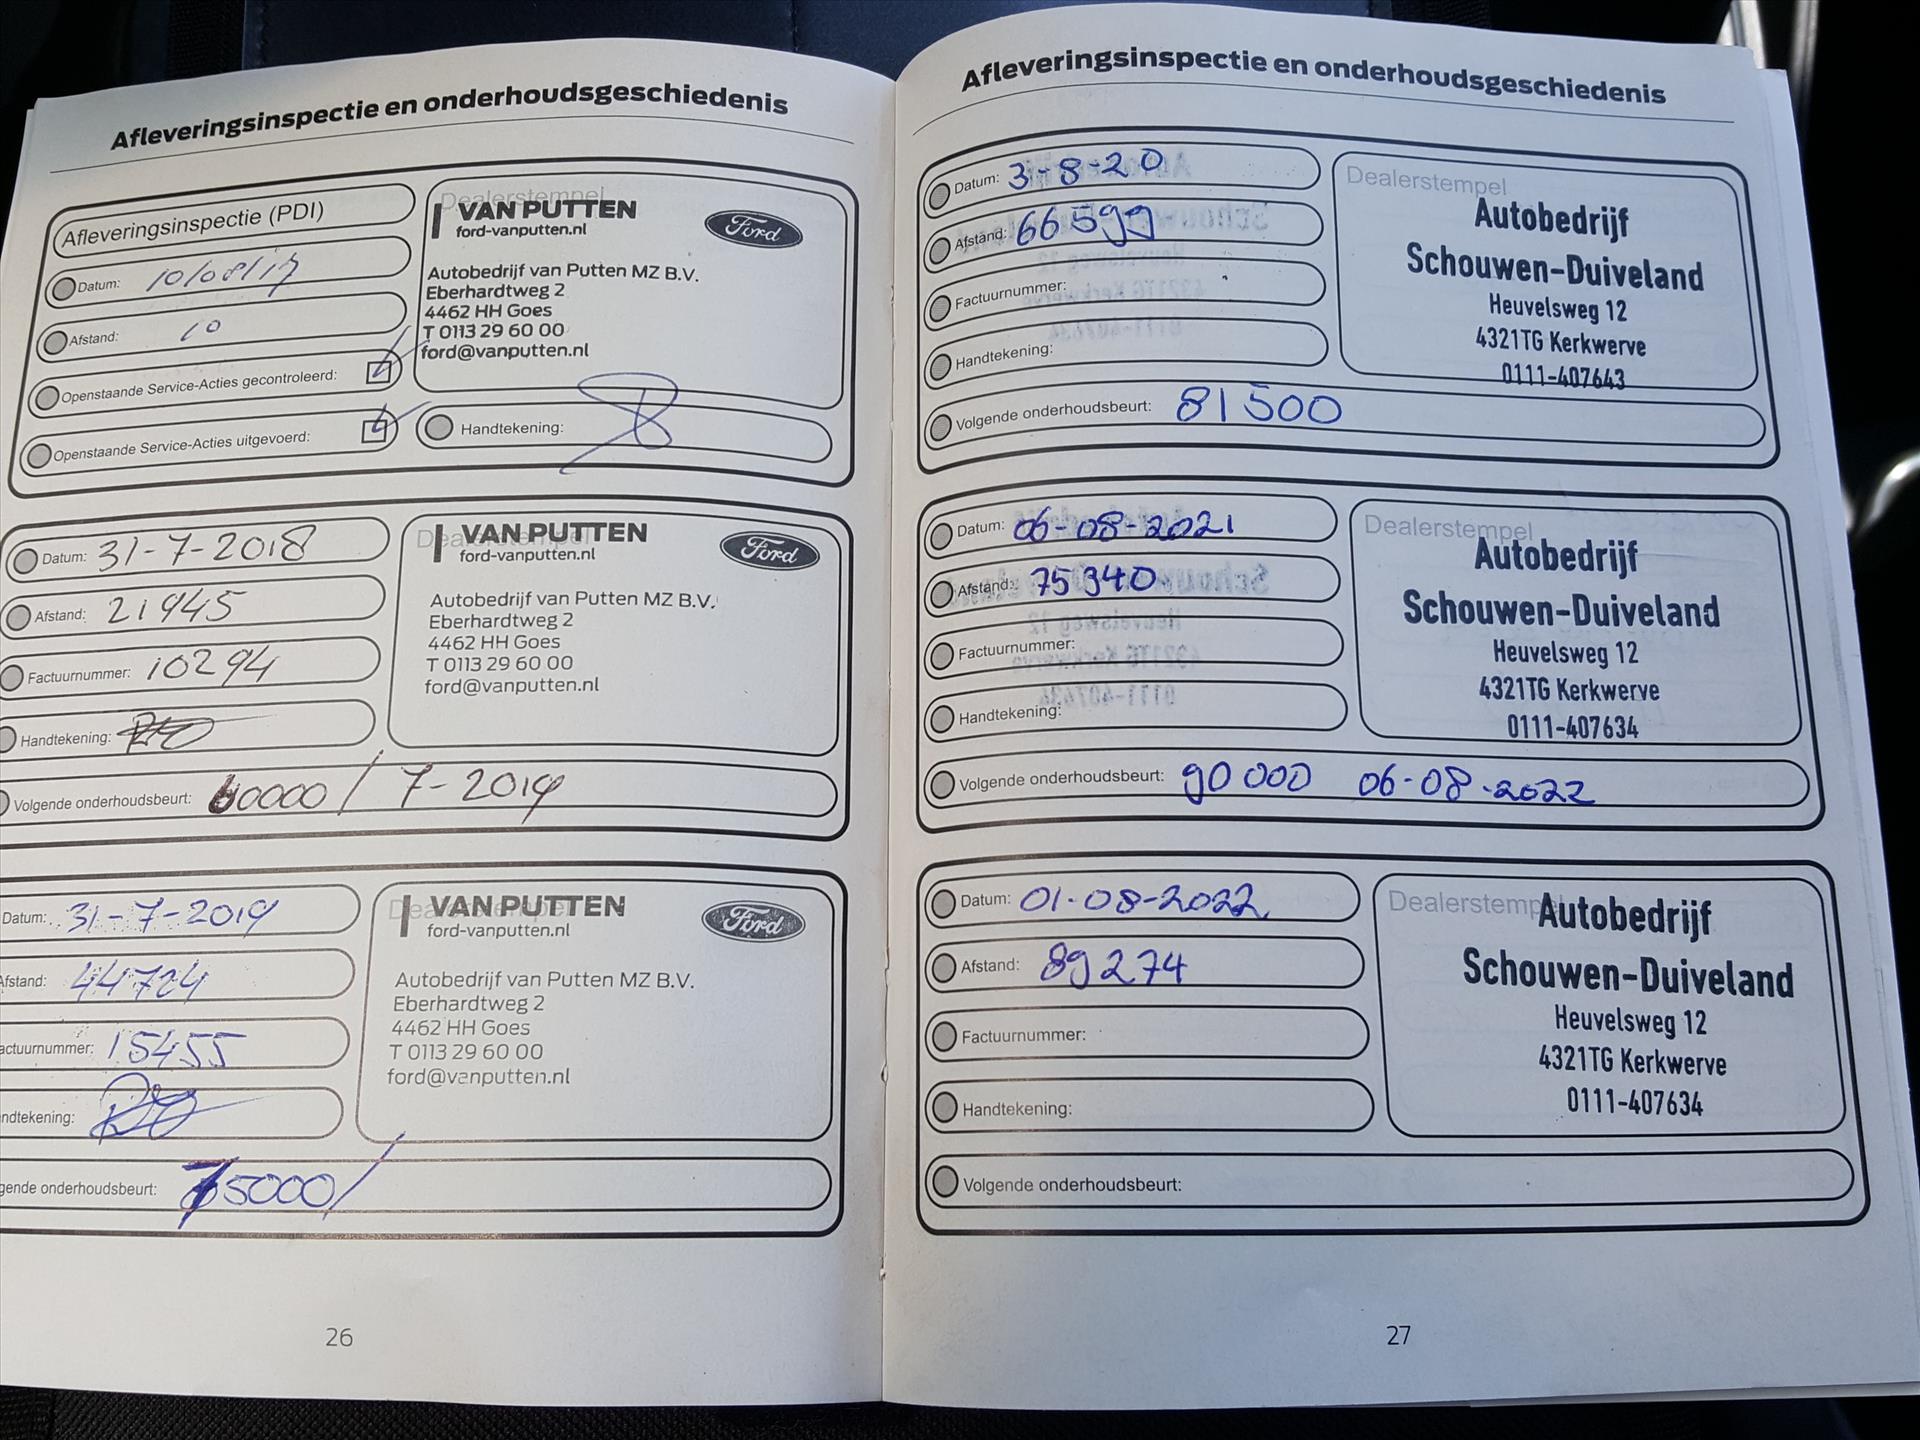 Afleveringsinspectie en onderhoudsgeschiedenis
Afleveringsinspectie (PDI)
Datum: 10/08/17
Afstand: 10
Openstaande Service-Acties gecontroleerd:
Openstaande Service-Acties uitgevoerd:
Dealerstempel
VAN PUTTEN
ford-vanputten.nl
Ford
Autobedrijf van Putten MZ B.V.
Eberhardtweg 2
4462 HH Goes
T 0113 29 60 00
ford@vanputten.nl
Handtekening:
Datum: 31-7-2018
Afstand: 21945
Factuurnummer: 10294
Handtekening:
Dealerstempel
VAN PUTTEN
ford-vanputten.nl
Ford
Autobedrijf van Putten MZ B.V.
Eberhardtweg 2
4462 HH Goes
T 0113 29 60 00
ford@vanputten.nl
Volgende onderhoudsbeurt: 60000 / 7-2019
Datum: 31-7-2019
Afstand: 44724
actuurnummer: 15455
ndtekening:
Dealerstempel
VAN PUTTEN
ford-vanputten.nl
Ford
Autobedrijf van Putten MZ B.V.
Eberhardtweg 2
4462 HH Goes
T 0113 29 60 00
ford@vanputten.nl
gende onderhoudsbeurt: 75000/
26
Afleveringsinspectie en onderhoudsgeschiedenis
Datum: 3-8-20
Afstand: 66599
Factuurnummer:
Handtekening:
Dealerstempel
Autobedrijf
Schouwen-Duiveland
Heuvelsweg 12
4321TG Kerkwerve
0111-407643
Volgende onderhoudsbeurt: 81500
Datum: 06-08-2021
Afstand: 75340
Factuurnummer:
Handtekening:
Dealerstempel
Autobedrijf
Schouwen-Duiveland
Heuvelsweg 12
4321TG Kerkwerve
0111-407634
Volgende onderhoudsbeurt: 90 000 06-08-2022
Datum: 01-08-2022
Afstand: 89274
Factuurnummer:
Handtekening:
Dealerstempel
Autobedrijf
Schouwen-Duiveland
Heuvelsweg 12
4321TG Kerkwerve
0111-407634
Volgende onderhoudsbeurt:
27